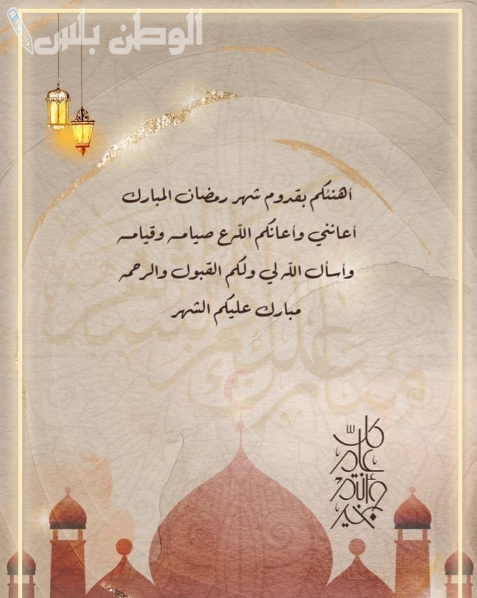 الوطن بلس
أهنئكم بقدوم شهر رمضان المبارك
أعانني وأعانكم اللّٰه ع صيامه وقيامه
وأسأل اللّٰه لي ولكم القبول والرحمه
مبارك عليكم الشهر
كل
عام
وأنتم
بخير